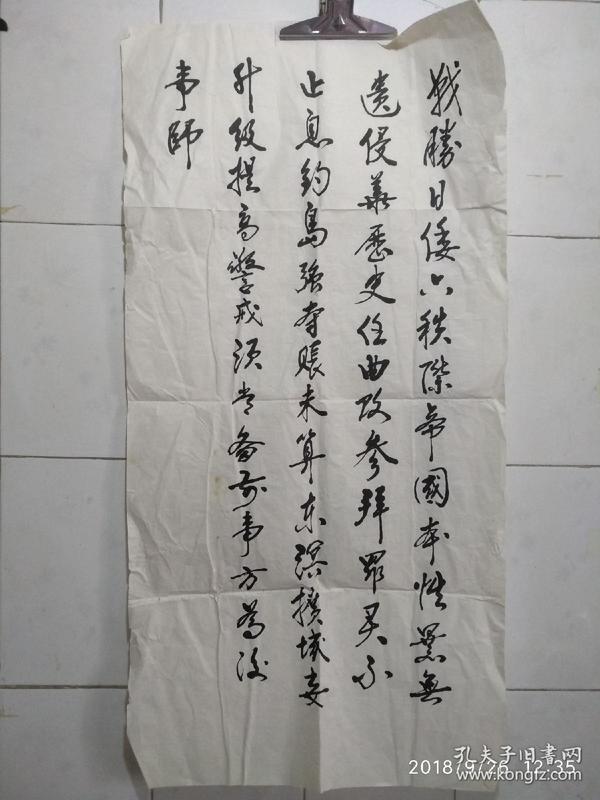 戰勝日倭六秩際帝國本性暴無
遺侵華歷史任曲改參拜罪灵不
止息釣島強奪賬未算东溟擴域妄
升级提高警戒须常备前事方為後
事師
2018/9/26 12:35
孔夫子旧書网
www.kongfz.com